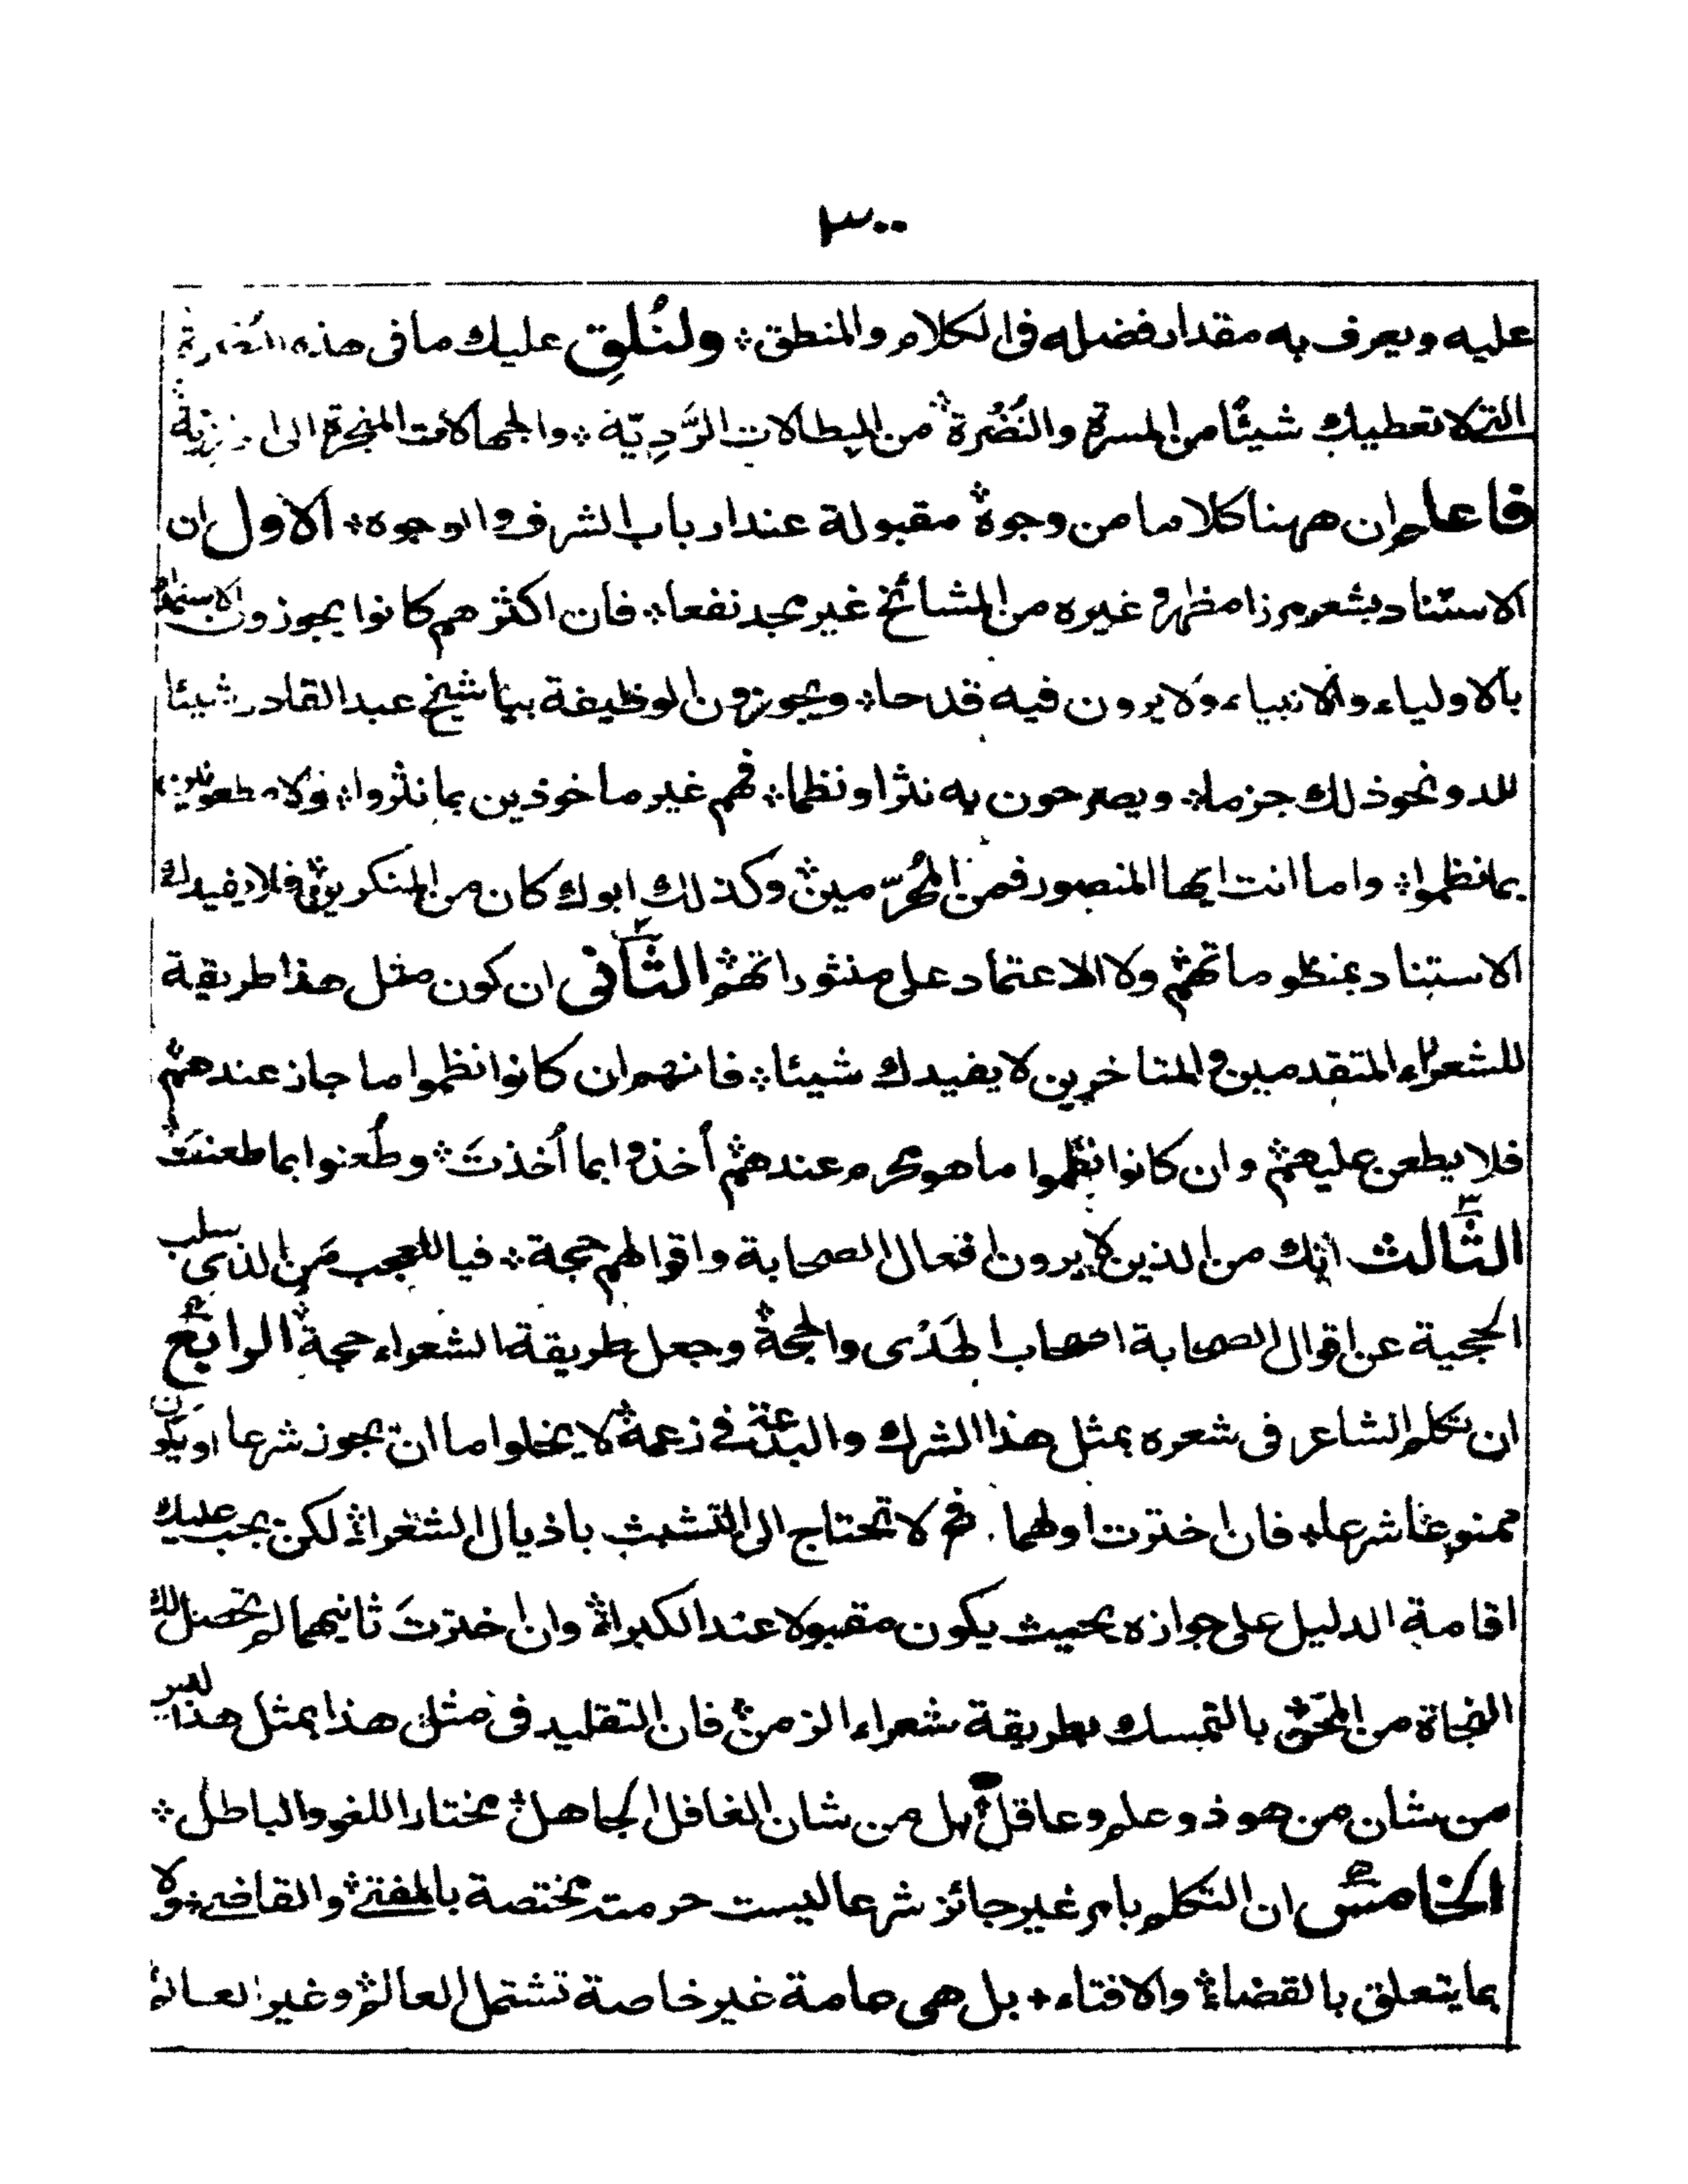 ٣٠٠
عليه ويعرف به مقدار فضله في الكلام والمنطق ؞ ولنُلقِ عليك ما فى هذه
التى لا تعطيك شيئًا من المسرة والنُضُرة ؞ من البطالات الرَّدِيّة ؞ والجهالات المنجرة الى
فاعلم ان ههنا كلاما من وجوة ؞ مقبولة عند ارباب الشرف والوجوه ؞ الاول ان
الاستناد بشعر مرزا مظهر وغيره من المشائخ غير مجد نفعا ؞ فان اكثرهم كانوا يجوزون الاستمداد
بالاولياء والانبياء ؞ ولا يرون فيه قدحا ؞ ويجوزون الوظيفة بيا شيخ عبد القادر شيئا
لله ونحو ذلك جزما ؞ ويصرحون به نثرا ونظما ؞ فهم غير ماخوذين بما نثروا ؞ ولا مطعونين
بما نظموا ؞ واما انت ايها المنصور فمن المُحُرّمين ؞ وكذلك ابوك كان من المنكرين ؞ فلا يفيدك
الاستناد بمنظوماتهم ؞ ولا الاعتماد على منثوراتهم ؞ الثانى ان كون مثل هذا طريقة
للشعراء المتقدمين والمتاخرين لا يفيدك شيئا ؞ فانهم ان كانوا نظموا ما جاز عندهم ؞
فلا يطعن عليهم ؞ وان كانوا نظموا ما هو محرم عندهم ؞ أخذوا بما أُخذتَ ؞ وطُعنوا بما طعنتَ ؞
الثالث انك من الذين لا يرون افعال الصحابة واقوالهم حجة ؞ فيا للعجب من الذى سلب
الحجية عن اقوال الصحابة اصحاب الهَدْى والحجة ؞ وجعل طريقة الشعراء حجة ؞ الرابع
ان تكلم الشاعر فى شعره بمثل هذا الشرك والبدعة فى زعمه ؞ لا يخلوا ما ان يجوز شرعا او يكون
ممنوعا شرعا ؞ فان اخترت اولهما ؞ فح لا تحتاج الى التشبث باذيال الشعراء ؞ لكن يجب عليك
اقامة الدليل على جوازه بحيث يكون مقبولا عند الكبراء ؞ وان اخترتَ ثانيهما لم تحصل لك
النجاة من المحن ؞ بالتمسك بطريقة شعراء الزمن ؞ فان التقليد فى مثل هذا بمثل هذا ليس
من شان من هو ذو علم وعاقل ؞ بل من شان الغافل الجاهل ؞ مختار اللغو والباطل ؞
الخامس ان التكلم بامر غير جائز شرعا ليست حرمته مختصة بالمفتى ؞ والقاضى ؞ ولا
بما يتعلق بالقضاء ؞ والافتاء + بل هى عامة غير خاصة تشتمل العالم ؞ وغير العالم